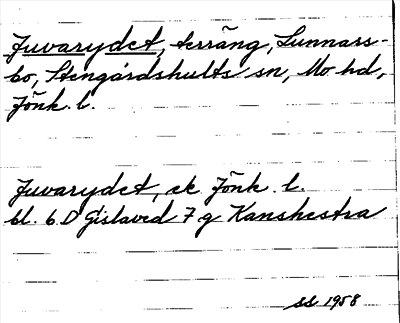 Juvarydet, terräng, Sunnars-
bo, Stengårdshults sn, Mo hd,
Jönk. l.
Juvarydet, ek Jönk. l.
bl. 6 D Gislaved 7 g Kanshestra
ss 1958